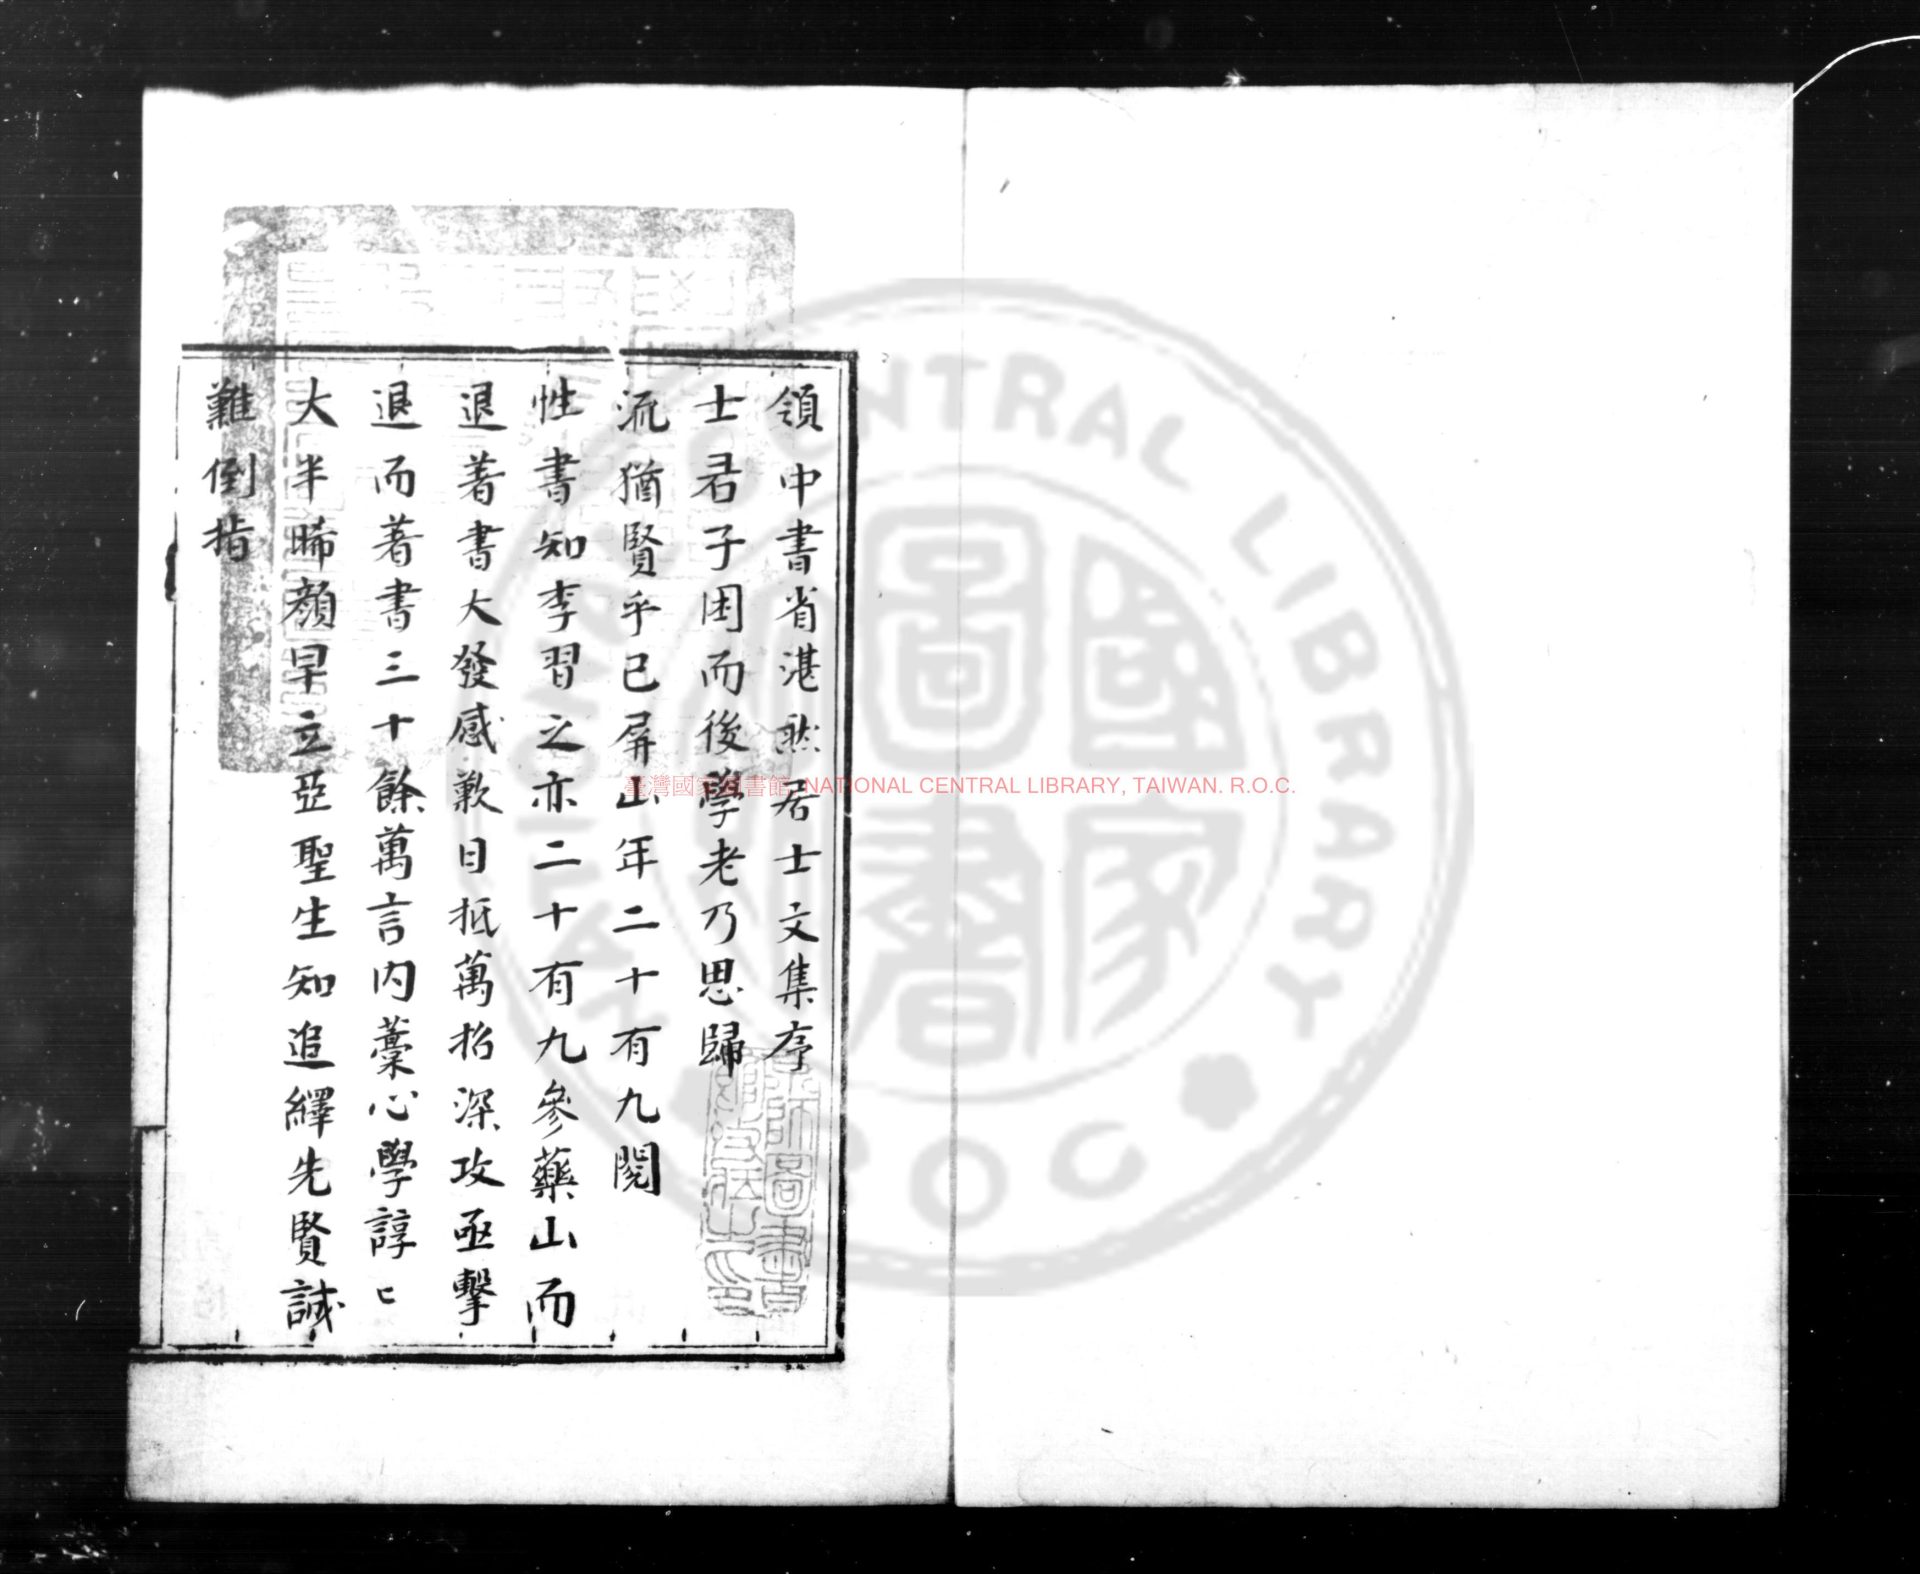 領中書省湛然居士文集序
士君子困而後學老乃思歸
流猶賢乎已屏山年二十有九閱
性書知李習之亦二十有九參藥山而
退著書大發感歎日抵萬招深攻亟擊
退而著書三十餘萬言內藁心學諄〻
大半晞顏早立亞聖生知追繹先賢誠
難倒指
臺灣國家圖書館, NATIONAL CENTRAL LIBRARY, TAIWAN. R.O.C.
國家圖書
NATIONAL CENTRAL LIBRARY
TAIWAN R.O.C.